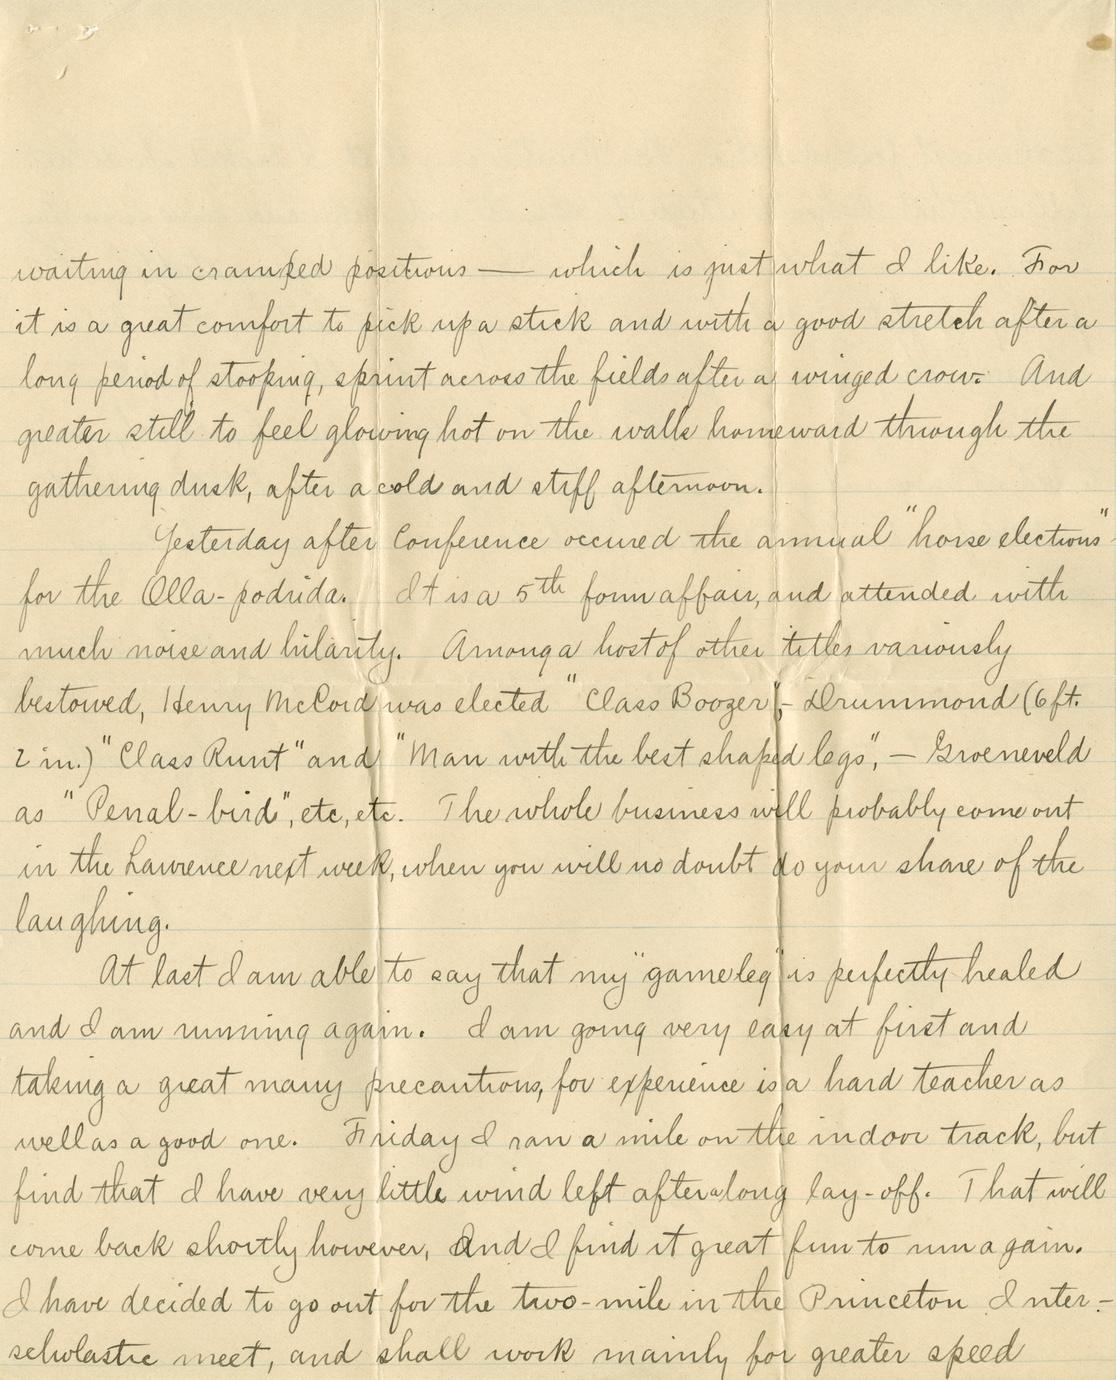 waiting in cramped positions — which is just what I like. For
it is a great comfort to pick up a stick and with a good stretch after a
long period of stooping, sprint across the fields after a winged crow. And
greater still to feel glowing hot on the walk homeward through the
gathering dusk, after a cold and stiff afternoon.
Yesterday after Conference occured the annual "horse elections"
for the Olla-podrida. It is a 5th form affair, and attended with
much noise and hilarity. Among a host of other titles variously
bestowed, Henry McCord was elected "Class Boozer", - Drummond (6 ft.
2 in.) "Class Runt" and "Man with the best shaped legs", — Groeneveld
as "Penal-bird", etc, etc. The whole business will probably come out
in the Lawrence next week, when you will no doubt do your share of the
laughing.
At last I am able to say that my "game leg" is perfectly healed
and I am running again. I am going very easy at first and
taking a great many precautions, for experience is a hard teacher as
well as a good one. Friday I ran a mile on the indoor track, but
find that I have very little wind left after a long lay-off. That will
come back shortly however, and I find it great fun to run again.
I have decided to go out for the two-mile in the Princeton Inter-
scholastic meet, and shall work mainly for greater speed